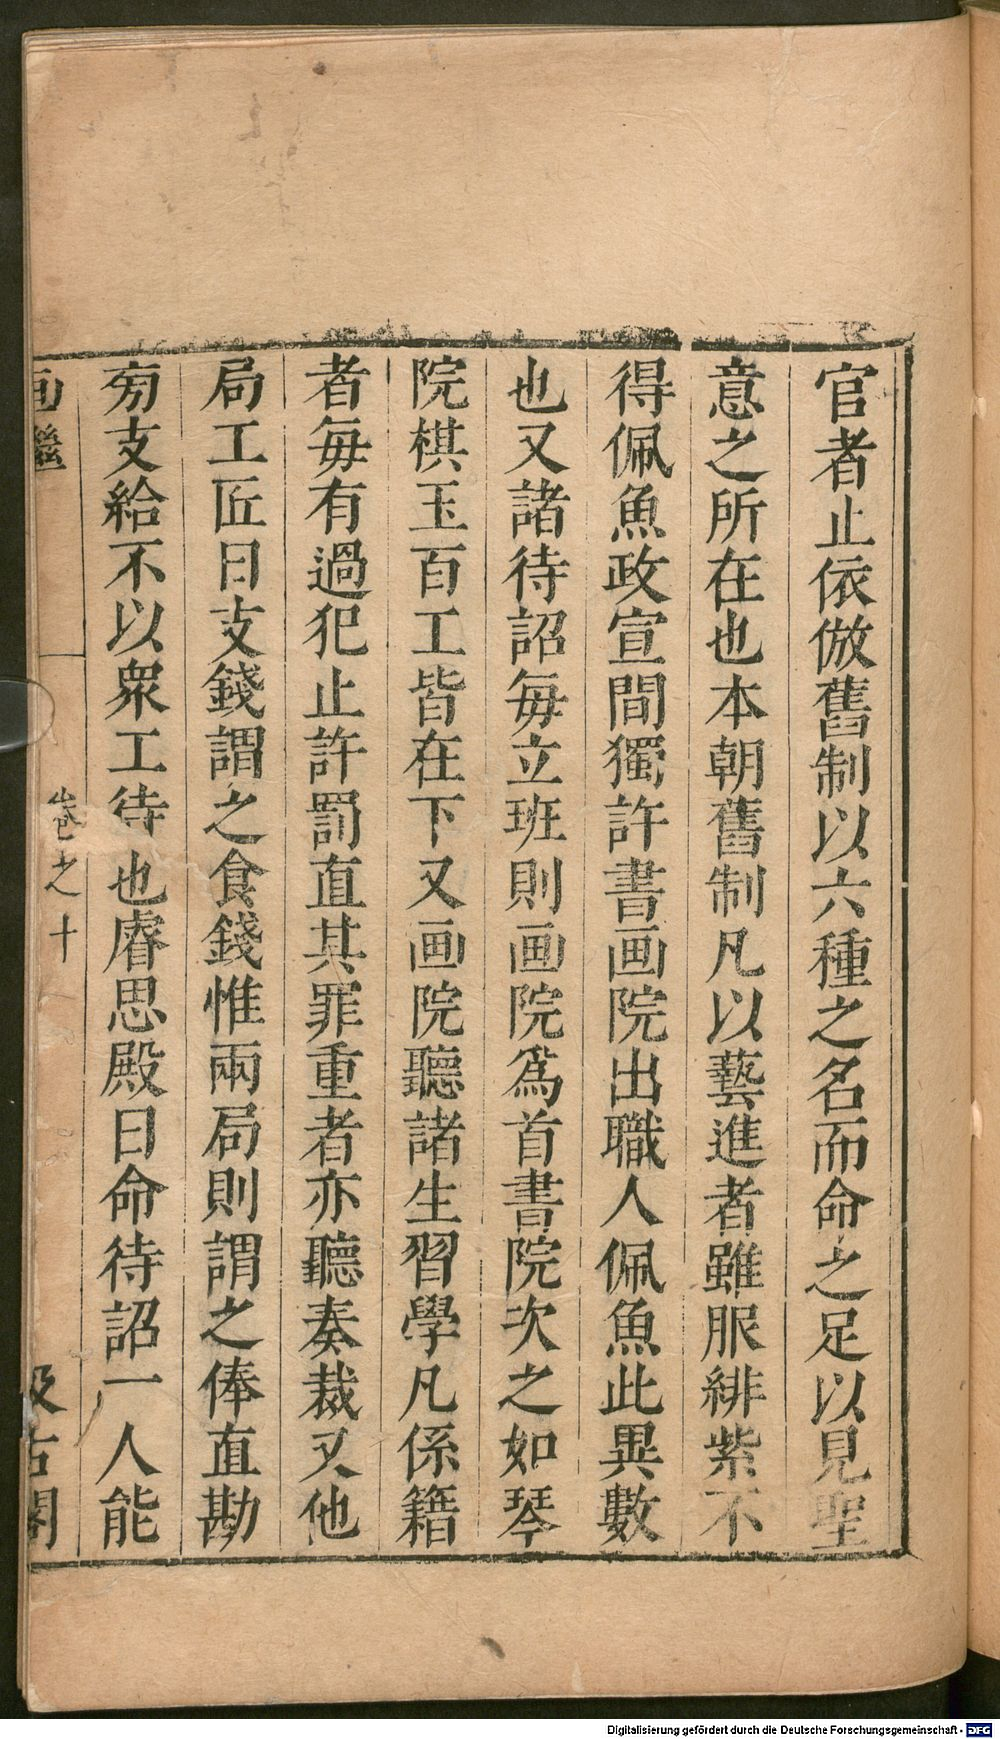 官者止依倣舊制以六種之名而命之足以見聖
意之所在也本朝舊制凡以藝進者雖服緋紫不
得佩魚政宣間獨許書画院出職人佩魚此異數
也又諸待詔每立班則画院爲首書院次之如琴
院棋玉百工皆在下又画院聽諸生習學凡係籍
者每有過犯止許罰直其罪重者亦聽奏裁又他
局工匠日支錢謂之食錢惟兩局則謂之俸直勘
旁支給不以衆工待也睿思殿日命待詔一人能
画繼
卷之十
汲古閣
Digitalisierung gefördert durch die Deutsche Forschungsgemeinschaft - DFG